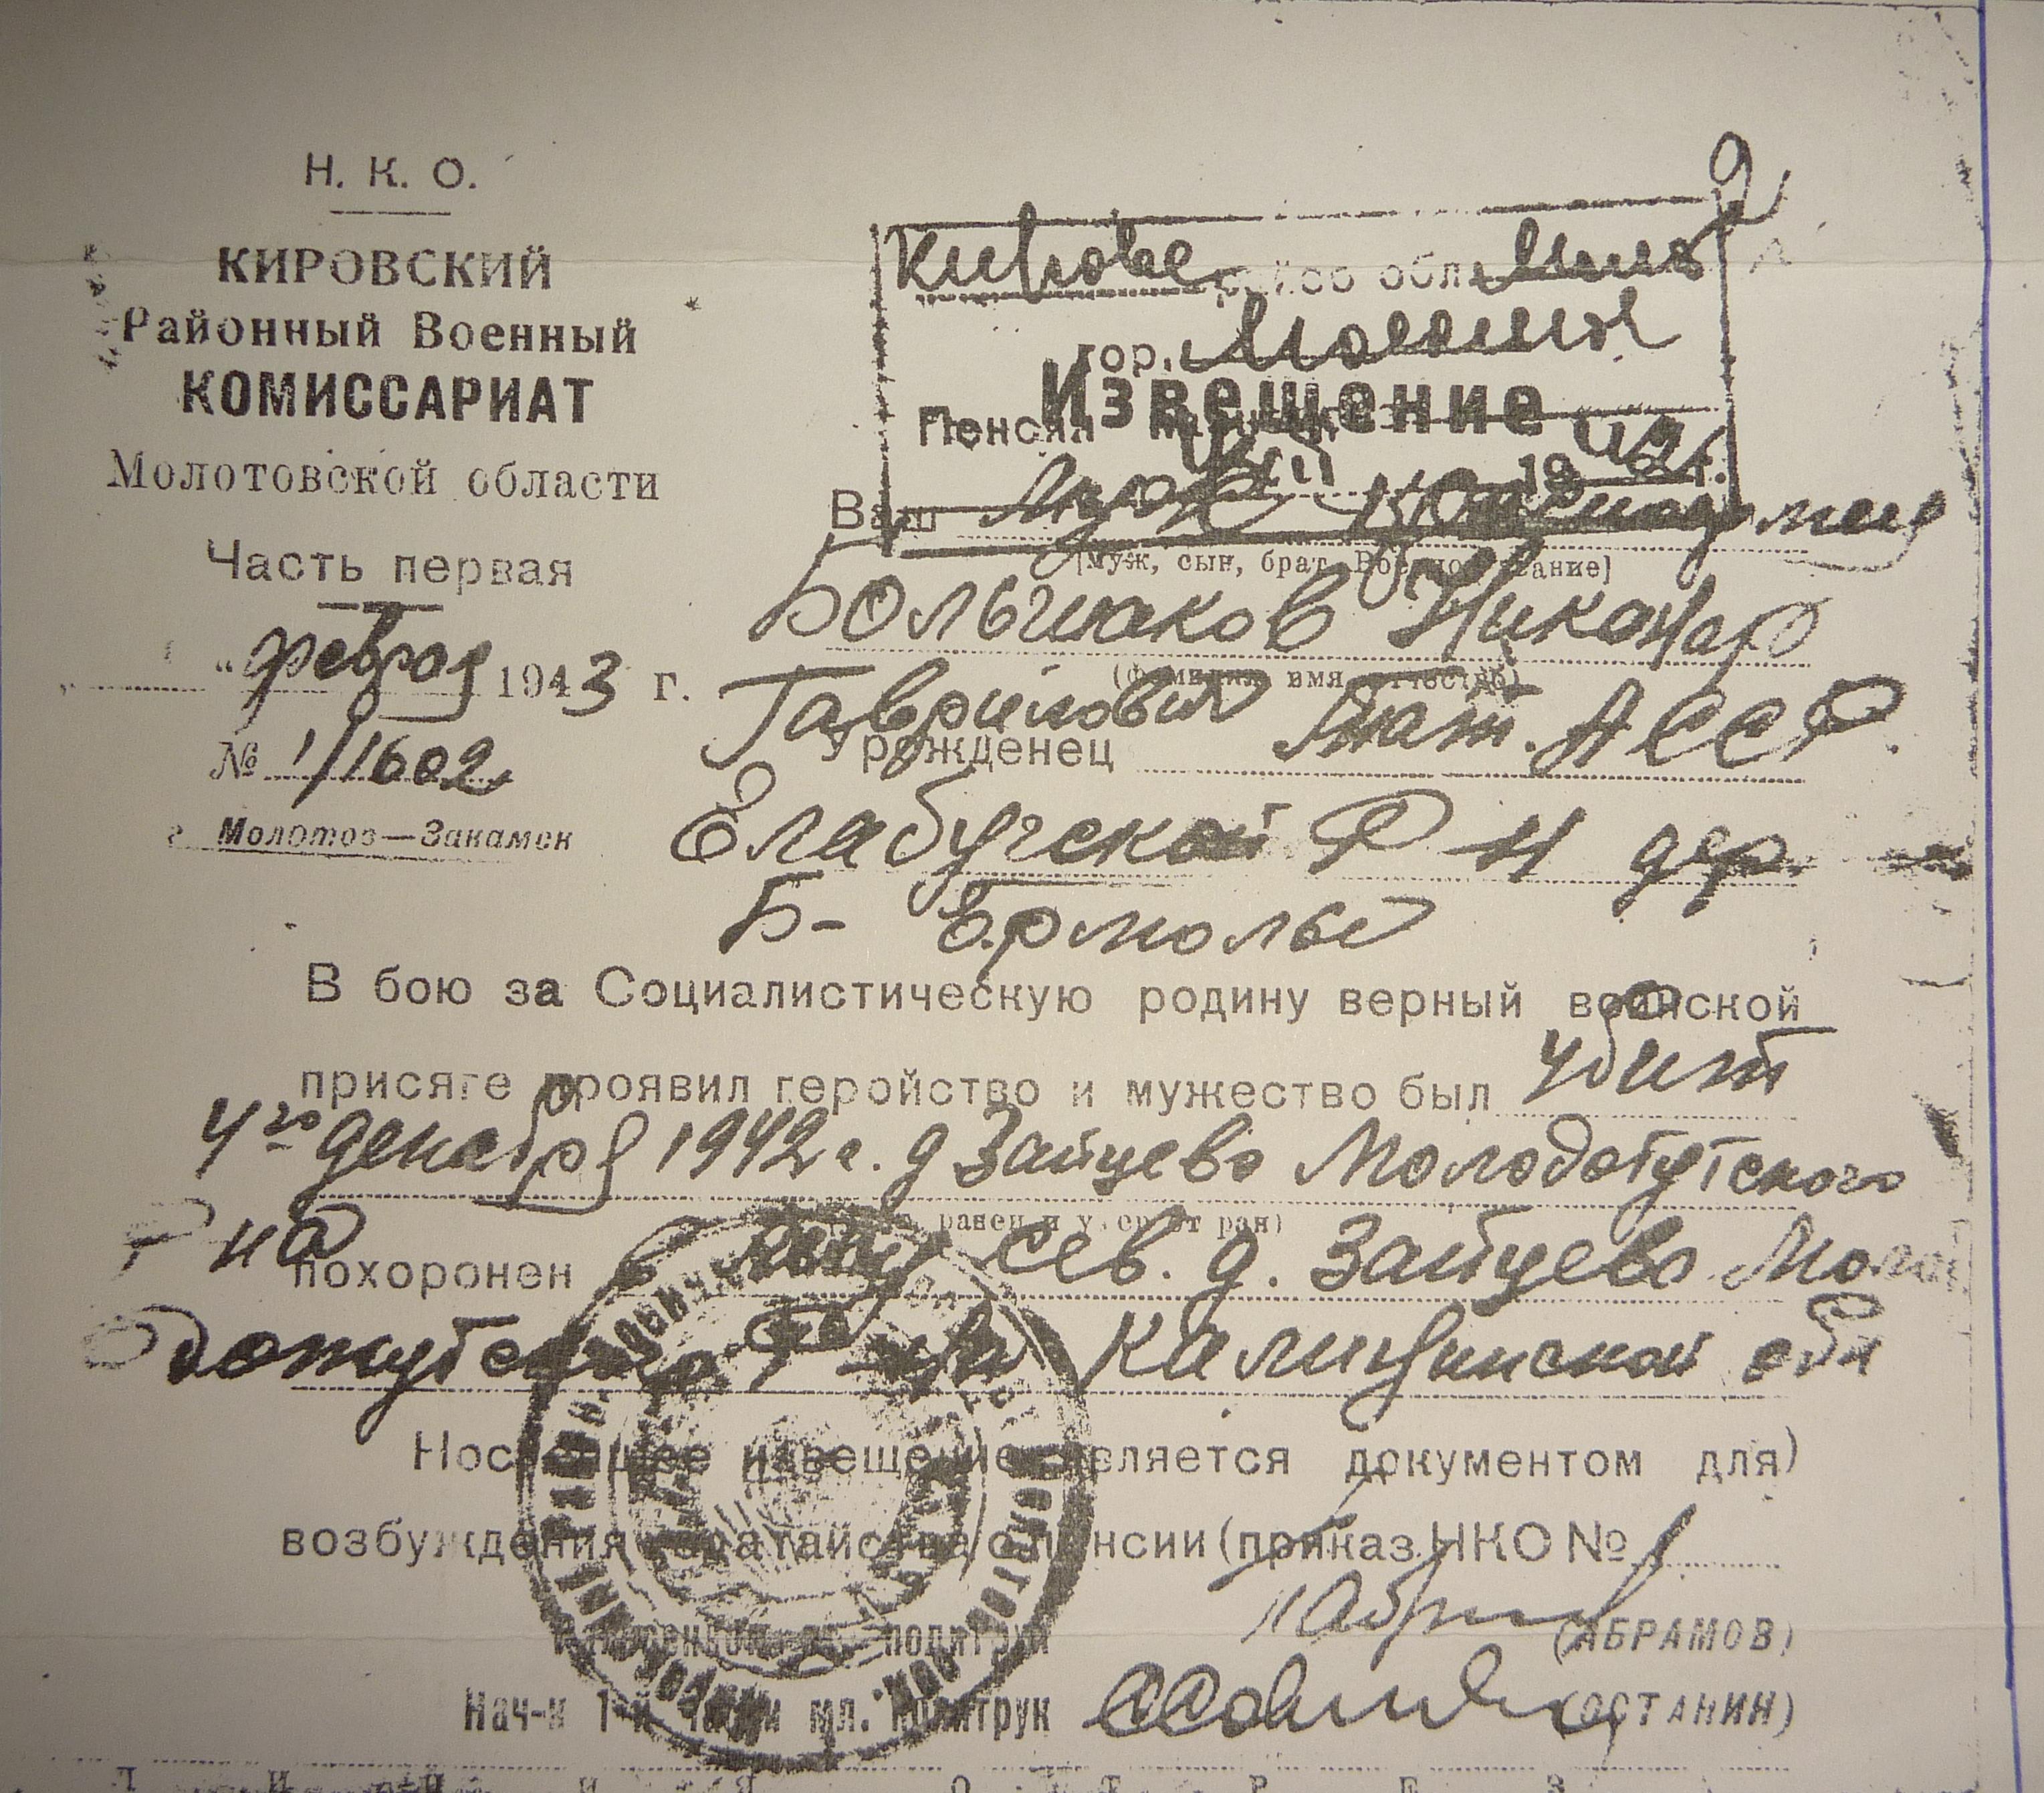 Н. К. О.
КИРОВСКИЙ
Районный Военный
КОМИССАРИАТ
Молотовской области
Часть первая
" феврая 1943 г.
№ 1/1602
г. Молотов—Закамск
Кировск
обл
гор. Молотов
Извещение
Пенсия
19 г.
Ваш муж
(муж, сын, брат, Военное звание)
Большаков Никанор
(фамилия, имя, отчество)
Гаврилович
Урожденец Тат. АССР
Елабугской Р-н дер
Б- Ермолы
В бою за Социалистическую родину верный воинской
присяге проявил геройство и мужество был убит
4го декабря 1942 г. д Зайцево Молодотутского
ранен и умер от ран)
Р на
похоронен сев. д. Зайцево Моло
дотутского Р на Калининской обл
Настоящее извещение является документом для)
возбуждения ходатайства о пенсии (приказ НКО №
политрук (АБРАМОВ)
Нач-к 1-й части мл. политрук (ОСТАНИН)